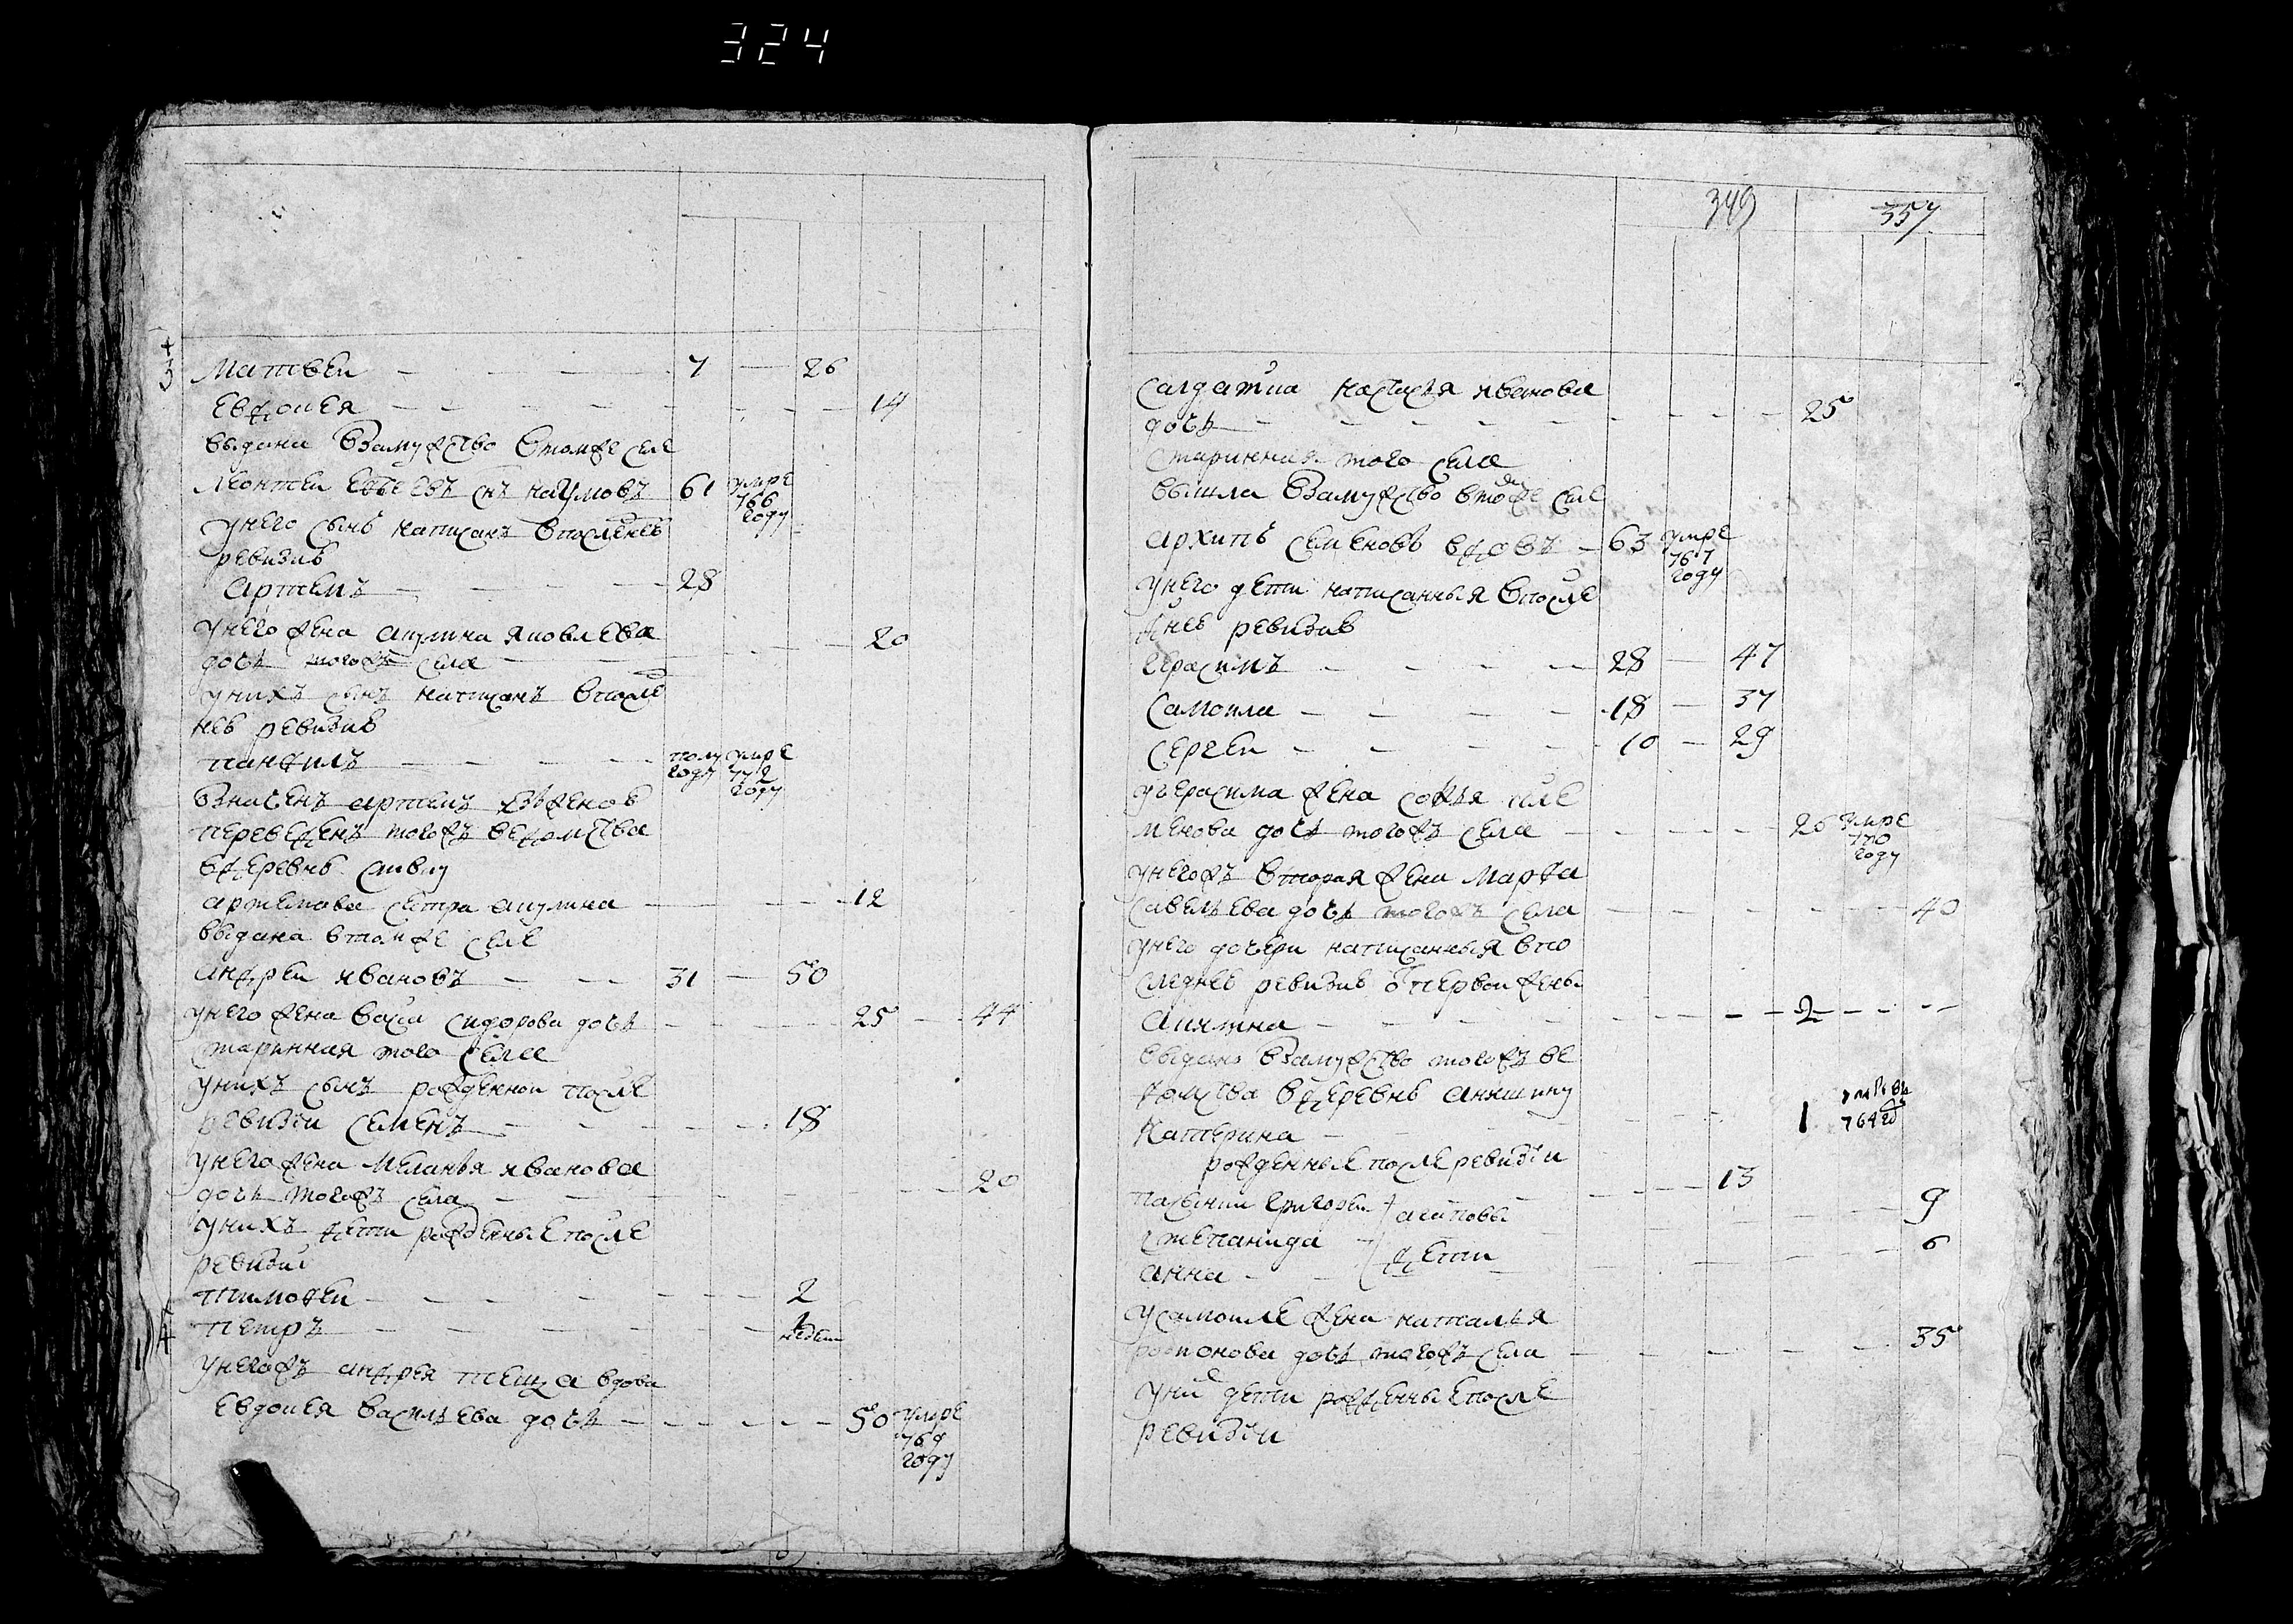 324
Матвеи — 7 — 26
Евдокея — 14
выдана взамужство втомже селе
Леонтеи снъ наумовъ 61 умре 766 году
унего сынъ написанъ впоследнеѣ
ревизиѣ
Артемъ — 28
унего жена акулина яковлева
дочь тогожъ села — 20
унихъ сынъ написанъ впослед
неѣ ревизиѣ
панфилъ — полу году умре 772 году
артемъ
переведенъ тогожъ ведомства
вдеревнѣ
артемова сестра акулина — 12
выдана втомже селе
андреи ивановъ — 31 — 50
унего жена васса сидорова дочь — 25 — 44
старинная того села
унихъ сынъ рожденнои после
ревизiи семенъ — 18
унего жена меланья иванова
дочь тогожъ села — 20
унихъ дети рожденные после
ревизиi
тимофеи — 2
петръ — 1 недели
унегожъ андрея теща вдова
Евдокея васильева дочь — 50 умре 769 году
349 357
салдатка настасья иванова
дочь — 25
старинная того села
вышла взамужство втомже селе
архипъ семеновъ — 63 умре 767 году
унего дети написанныя впосле
днеѣ ревизиѣ
герасимъ — 28 — 47
самоила — 18 — 37
сергеи — 10 — 29
угерасима жена софья
дочь тогожъ села — 26 умре 770 году
унегожъ вторая жена марфа
савельева дочь тогожъ села — 40
унего дочери написанныя впо
следнеѣ ревизиѣ от первои жены
акилина — 2
выдана взамужство тогожъ ве
домства вдеревнѣ
катерина — 1 764 год
рожденные после ревизiи
пасынки григореи — 13
степанида — 9
анна — 6
дети
усамоиле жена наталья
дочь тогожъ села — 35
уних дети рожденные после
ревизiи